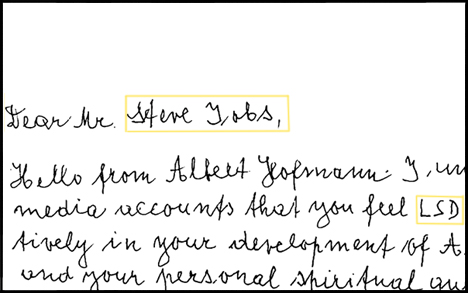 Dear Mr. Steve Jobs,
Hello from Albert Hofmann. I un
media accounts that you feel LSD
tively in your development of A
and your personal spiritual que